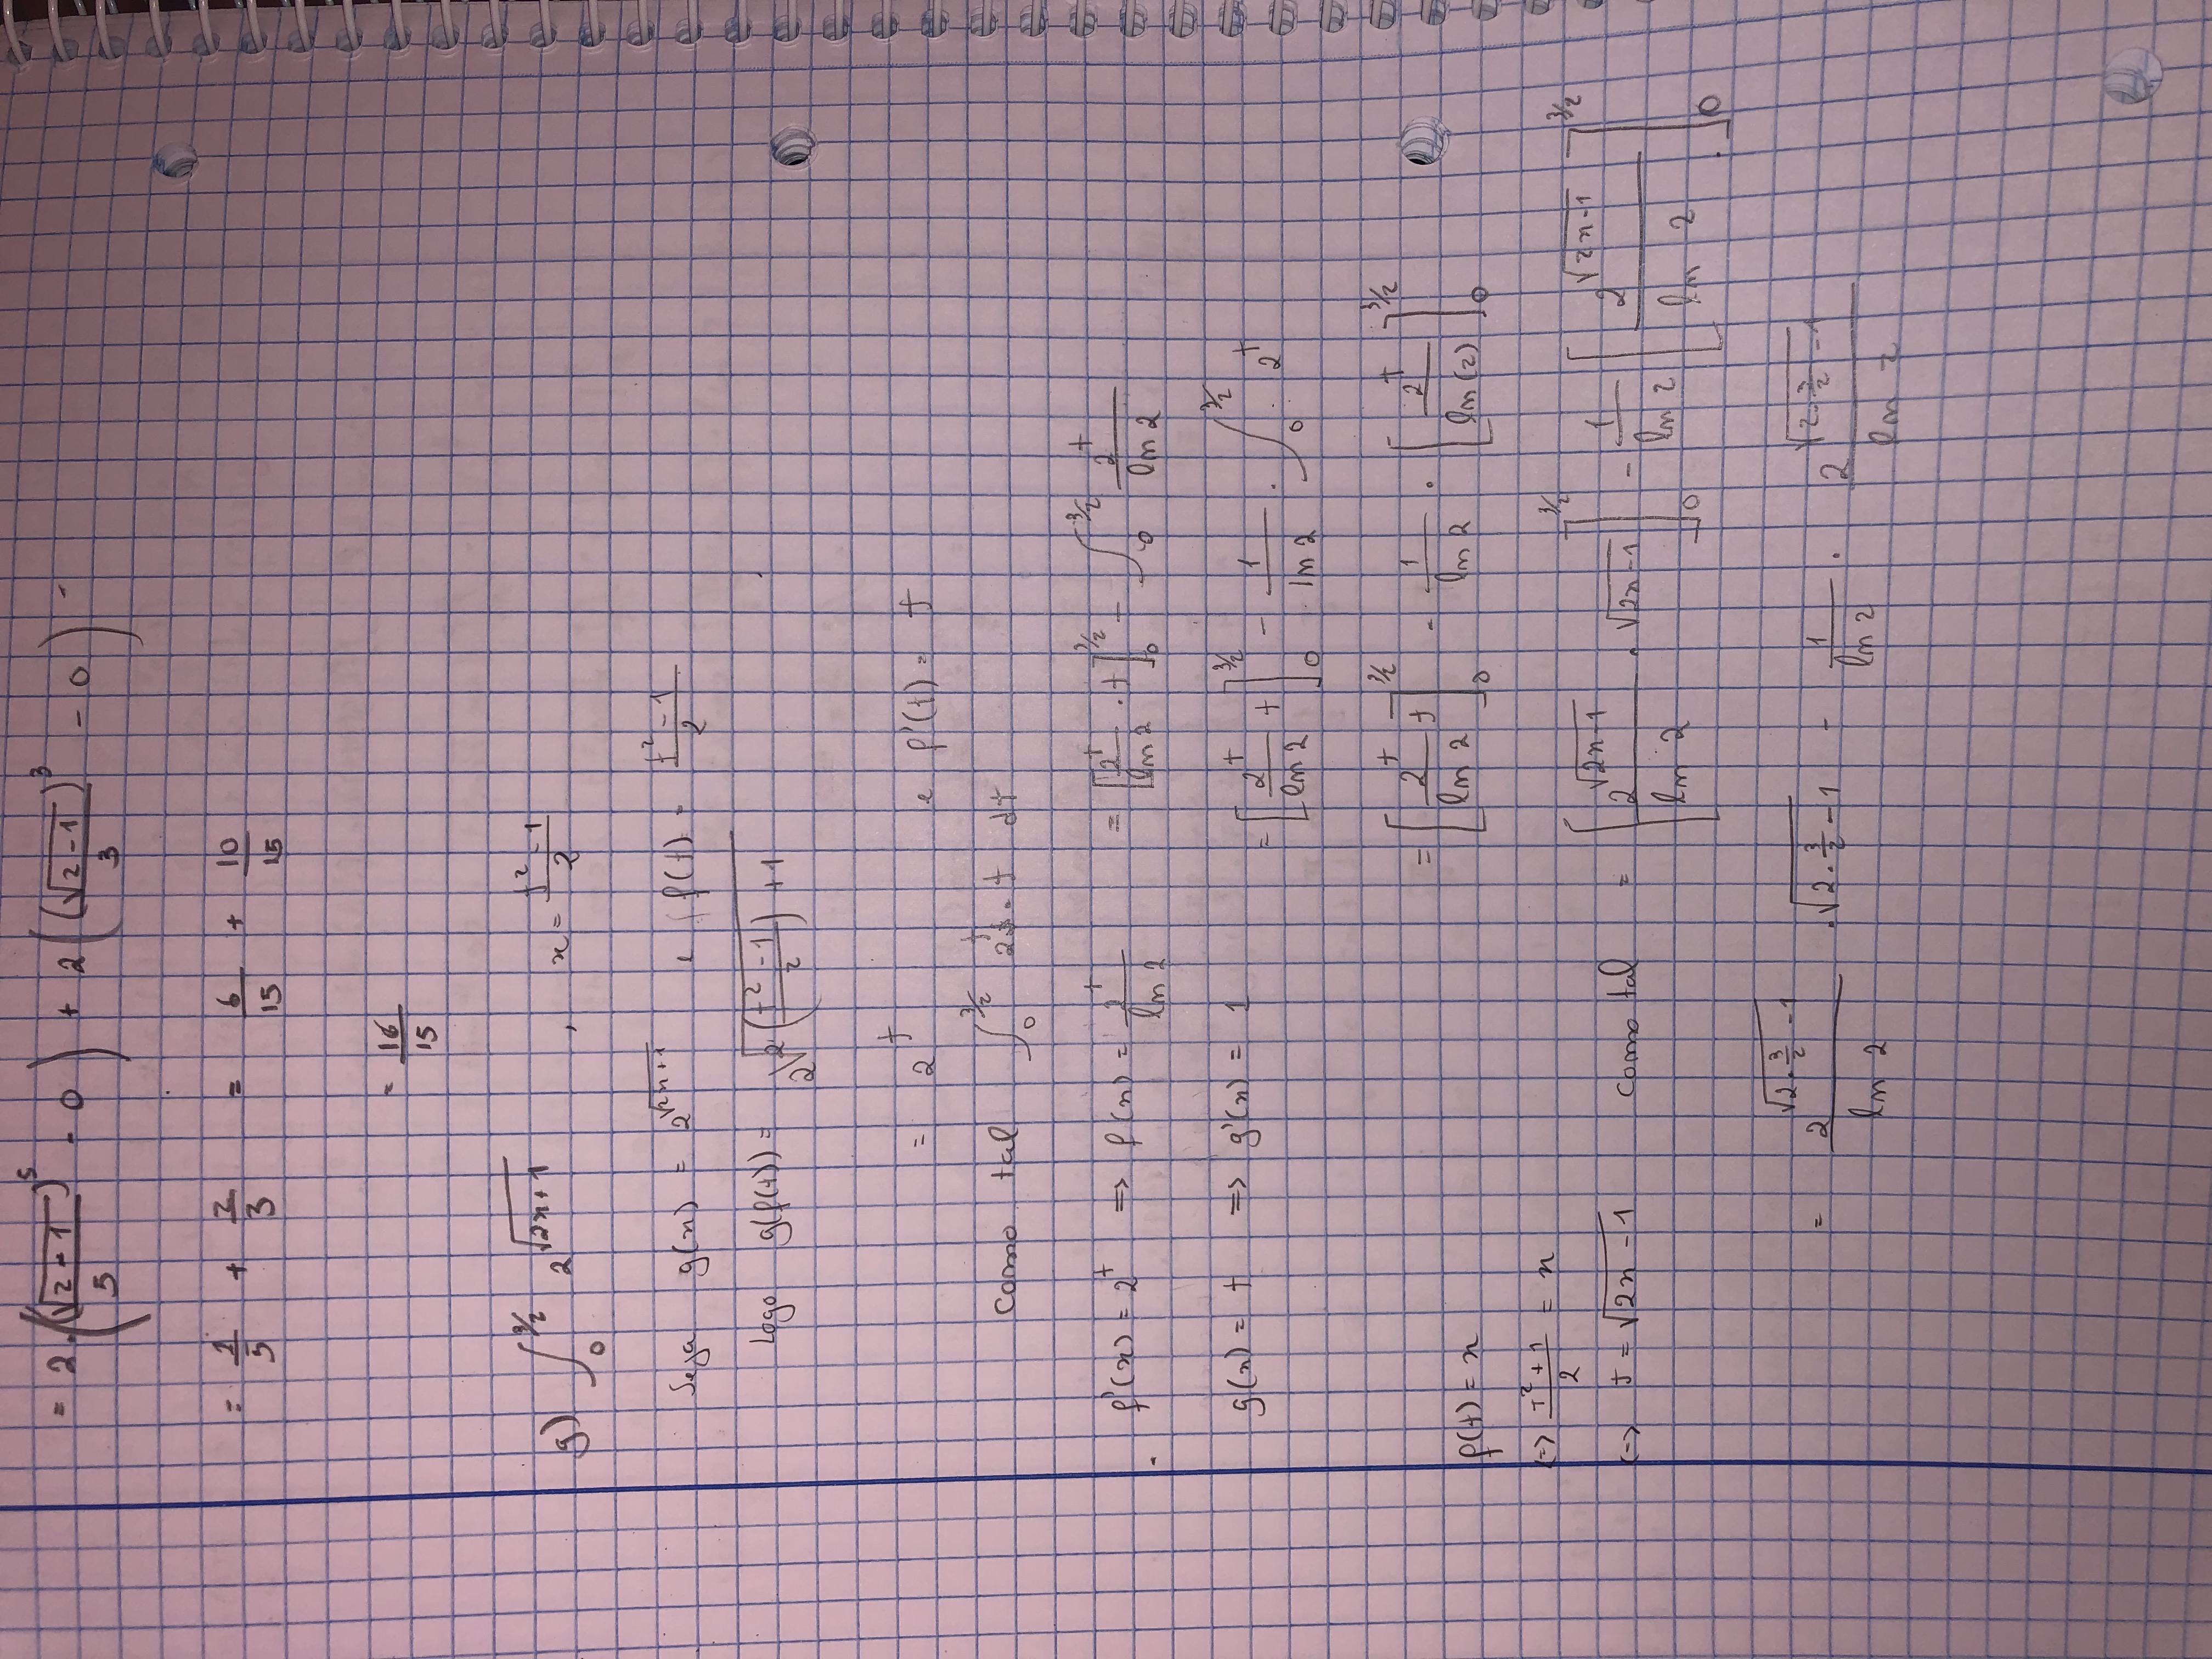 = 2·((√(2-1))^5/5 - 0) + 2((√(2-1))^3/3 - 0) -
= 2/5 + 2/3 = 6/15 + 10/15
= 16/15
g) ∫_0^{3/2} 2^{√(2x+1)} , x = (t^2 - 1)/2
Seja g(x) = 2^{√(2x+1)} e f(t) = (t^2 - 1)/2
Logo g(f(t)) = 2^{√(2((t^2 - 1)/2) + 1)}
= 2^t e f'(t) = t
Como tal ∫_0^{3/2} 2^t · t dt
f'(x) = 2^t => f(x) = 2^t/ln 2 = [2^t/ln 2 · t]_0^{3/2} - ∫_0^{3/2} 2^t/ln 2
g(x) = t => g'(x) = 1 = [2^t/ln 2 t]_0^{3/2} - 1/ln 2 · ∫_0^{3/2} 2^t
= [2^t/ln 2 t]_0^{3/2} - 1/ln 2 · [2^t/ln(2)]_0^{3/2}
f(t) = x
<=> (t^2 + 1)/2 = x
<=> t = √(2x - 1) Como tal = [2^{√(2x-1)}/ln 2 · √(2x-1)]_0^{3/2} - 1/ln 2 [2^{√(2x-1)}/ln 2]_0^{3/2}
= 2^{√(2·3/2 - 1)}/ln 2 · √(2·3/2 - 1) - 1/ln 2 · 2^{√(2·3/2 - 1)}/ln 2